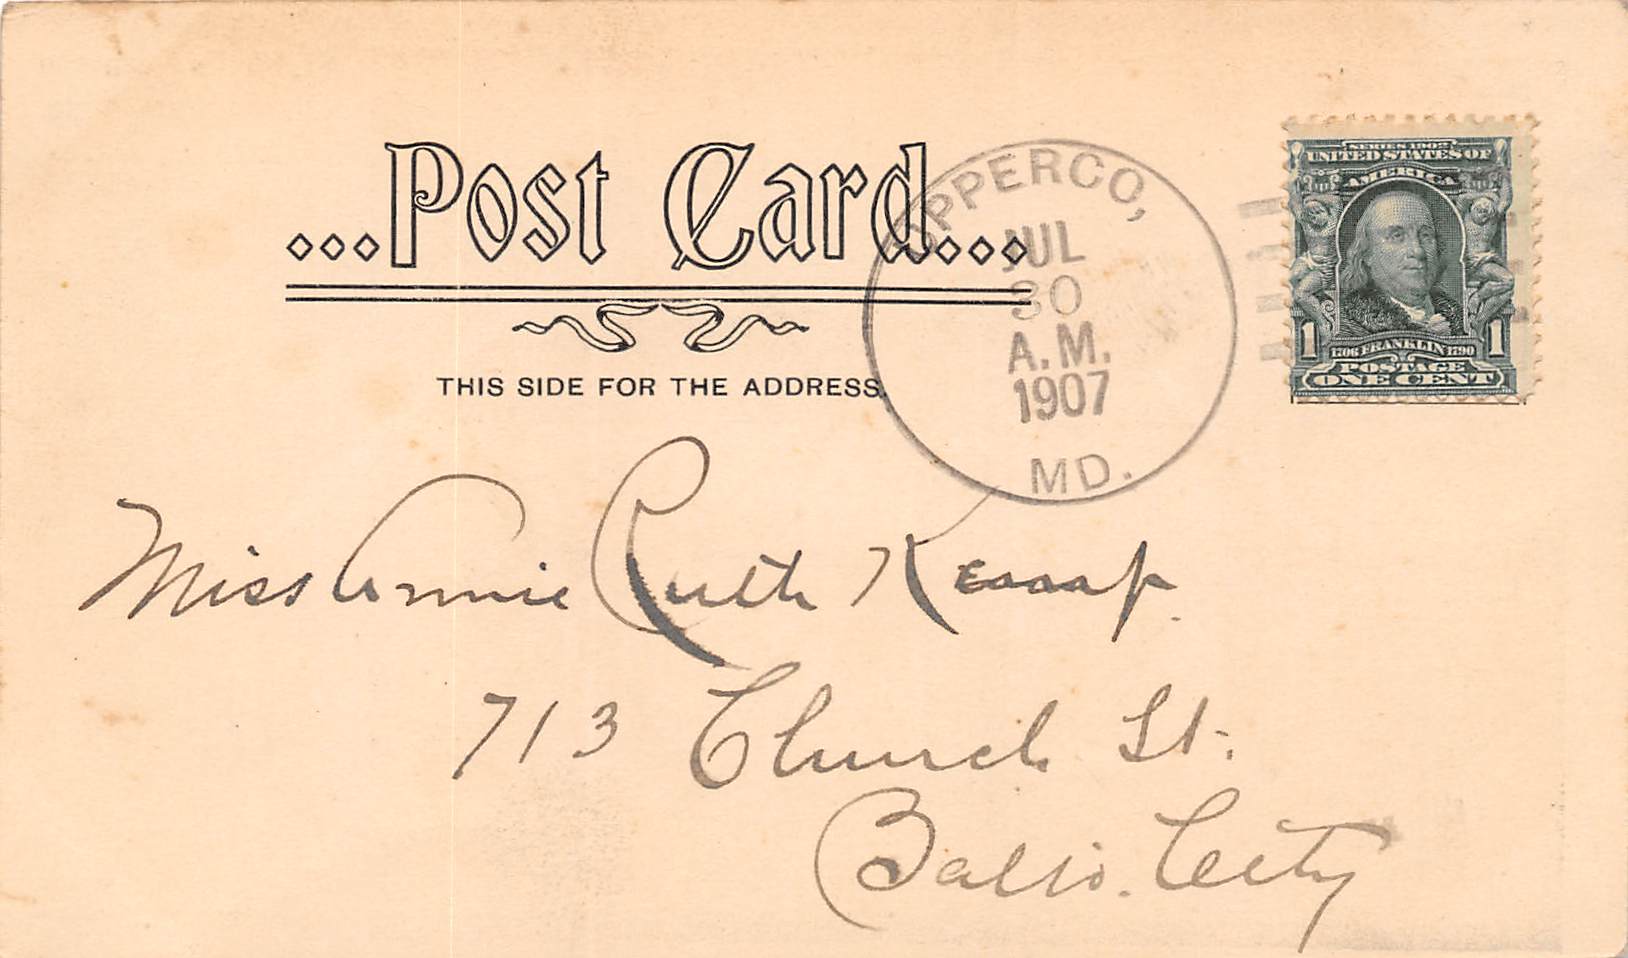 ...Post Card...
THIS SIDE FOR THE ADDRESS.
UPPERCO,
JUL
30
A.M.
1907
MD.
SERIES 1902
UNITED STATES OF
AMERICA
1 1706 FRANKLIN 1790 1
POSTAGE
ONE CENT
Miss Annie Ruth
713 Church St.
Balto. City